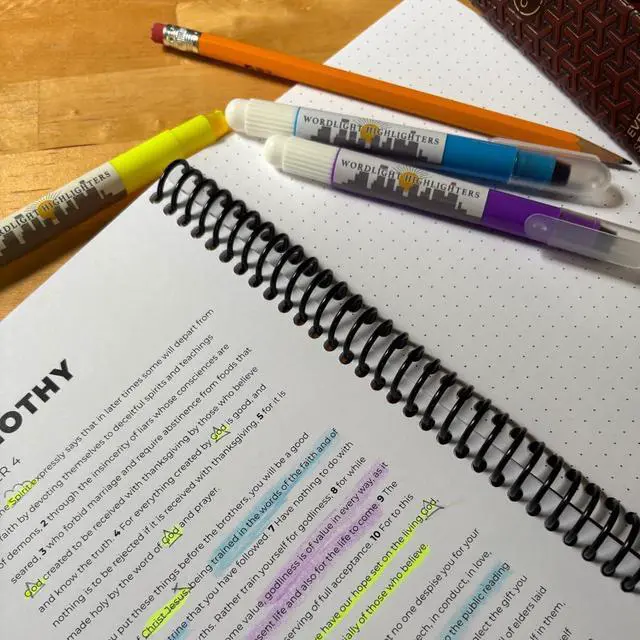 WORDLIGHT HIGHLIGHTERS
WORDLIGHT HIGHLIGHTERS
WORDLIGHT HIGHLIGHTERS
OTHY
R 4
Spirit expressly says that in later times some will depart from
faith by devoting themselves to deceitful spirits and teachings
of demons, 2 through the insincerity of liars whose consciences are
seared, 3 who forbid marriage and require abstinence from foods that
God created to be received with thanksgiving by those who believe
and know the truth. 4 For everything created by God is good, and
nothing is to be rejected if it is received with thanksgiving, 5 for it is
made holy by the word of God and prayer.
put these things before the brothers, you will be a good
Christ Jesus, being trained in the words of the faith and of
that you have followed. 7 Have nothing to do with
ths. Rather train yourself for godliness; 8 for while
ome value, godliness is of value in every way, as it
sent life and also for the life to come. 9 The
serving of full acceptance. 10 For to this
we have our hope set on the living God,
ially of those who believe.
at no one despise you for your
ech, in conduct, in love,
to the public reading
ect the gift you
of elders laid